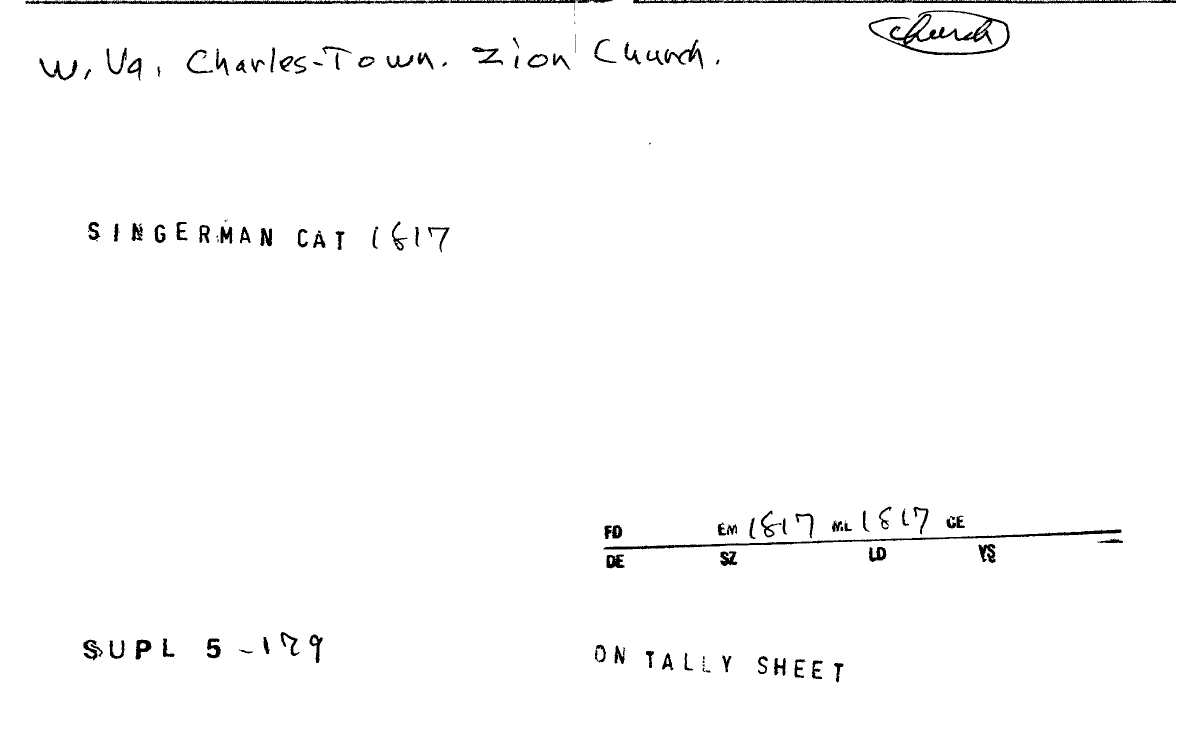 church
W. Va. Charles-Town. Zion Church.
SINGERMAN CAT 1817
FD EM 1817 ML 1817 CE
DE SZ LD YS
SUPL 5 -179
ON TALLY SHEET